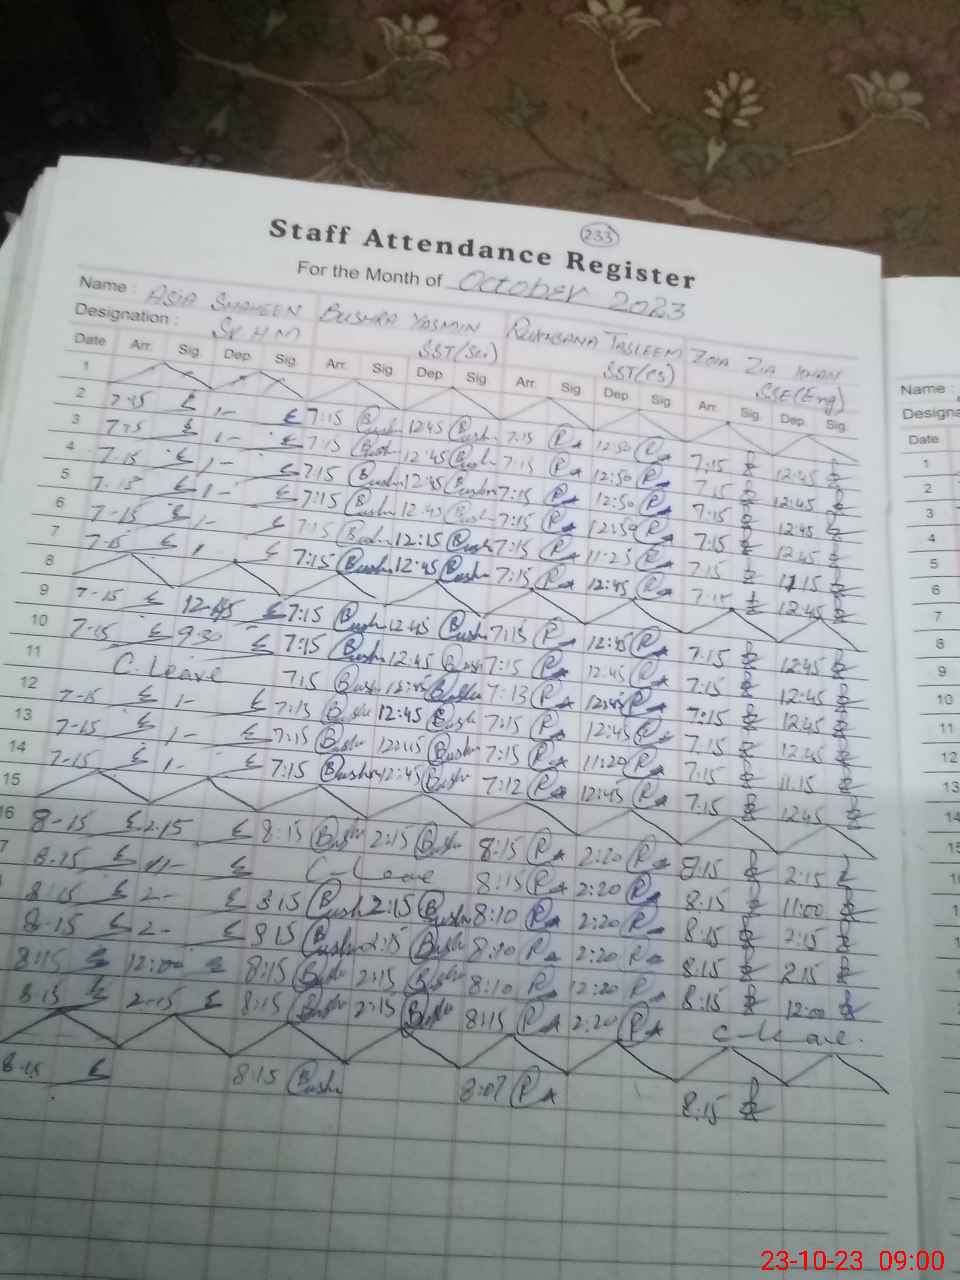 233
Staff Attendance Register
For the Month of October 2023
Name : ASIA SHAHEEN BUSHRA YASMIN RUKHSANA TASLEEM ZOIA ZIA KHAN Name :
Designation : Sr. H M SST(Sci) SST(CS) SSE(Eng) Designa
Date Arr. Sig. Dep. Sig. Arr. Sig. Dep. Sig. Arr. Sig. Dep. Sig. Arr. Sig. Dep. Sig. Date
1
2 7-15 1- 7:15 Bush 12:45 Bush 7:15 R 12:50 R 7:15 12:45
3 7-15 1- 7:15 Bush 12:45 Bush 7:15 R 12:50 R 7:15 12:45
4 7-15 1- 7:15 Bush 12:45 Bush 7:15 R 12:50 R 7:15 12:45
5 7-15 1- 7:15 Bush 12:45 Bush 7:15 R 12:50 R 7:15 12:45
6 7-15 1- 7:15 Bush 12:15 Bush 7:15 R 11:25 R 7:15 11:15
7 7-15 1 7:15 Bush 12:45 Bush 7:15 R 12:45 R 7:15 12:45
8
9 7-15 12-45 7:15 Bush 12:45 Bush 7:15 R 12:45 R 7:15 12:45
10 7-15 9-30 7:15 Bush 12:45 Bush 7:15 R 12:45 R 7:15 12:45
11 C. Leave 7:15 Bush 12:45 Bush 7:13 R 12:45 R 7:15 12:45
12 7-15 1- 7:15 Bush 12:45 B 7:15 R 12:45 R 7:15 12:45
13 7-15 1- 7:15 Bush 12:45 Bush 7:15 R 11:20 R 7:15 11.15
14 7-15 1- 7:15 Bush 12:45 Bush 7:12 R 12:45 R 7:15 12:45
15
16 8-15 2-15 8:15 Bush 2:15 Bush 8:15 R 2:20 R 8:15 2:15
7 8-15 11- C-Leave 8:15 R 2:20 R 8:15 11:00
8:15 2- 8:15 Bush 2:15 Bush 8:10 R 2:20 R 8:15 2:15
8-15 2- 8:15 Bush 2:15 Bush 8:10 R 2:20 R 8:15 2:15
8:15 12:00 8:15 Bush 2:15 Bush 8:10 R 12:20 R 8:15 12:00
8-15 2-15 8:15 Bush 2:15 Bush 8:15 R 2:20 R C-Leave.
8-15 8:15 Bush 8:07 R 8:15
1
2
3
4
5
6
7
8
9
10
11
12
13
14
23-10-23 09:00